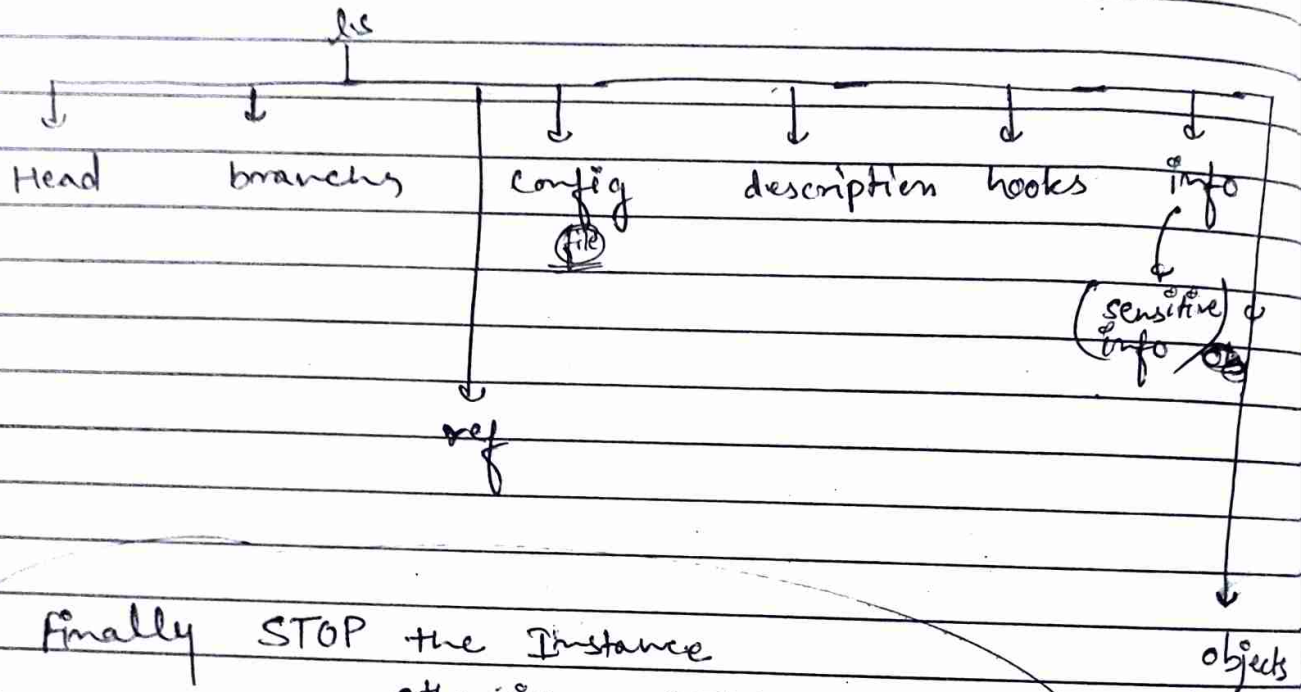 ls
Head branchs config description hooks info
file
(sensitive
info)
ref
Finally STOP the Instance
objects